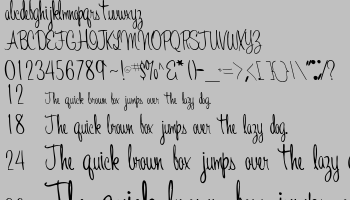 abcdefghijklmnopqrstuvwxyz
ABCDEFGHIJKLMNOPQRSTUVWXYZ
0123456789 ~!@#$%^&*()-_=>,<[]{}\|"":;/?
12 The quick brown box jumps over the lazy dog.
18 The quick brown box jumps over the lazy dog.
24 The quick brown box jumps over the lazy